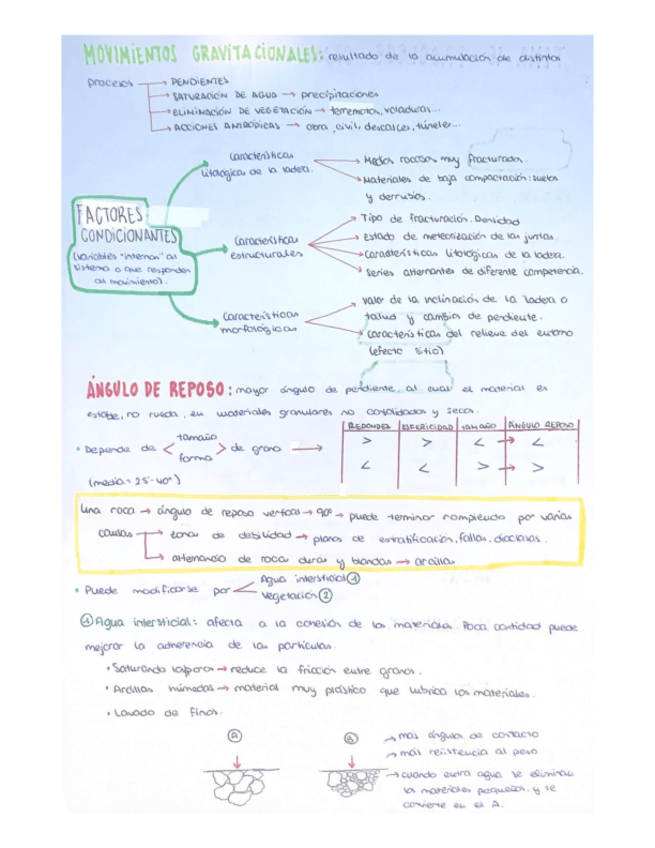 MOVIMIENTOS GRAVITACIONALES: resultado de la acumulación de distintos
procesos → PENDIENTES
→ SATURACIÓN DE AGUA → precipitaciones
→ ELIMINACIÓN DE VEGETACIÓN → terremotos, voladuras...
→ ACCIONES ANTRÓPICAS → obra civil, descalces, túneles...
Características
litológicas de la ladera.
→ Medios rocosos muy fracturados.
→ Materiales de baja compactación: suelos
y derrubios.
FACTORES
CONDICIONANTES
(variables "internas" al
sistema o que responden
al movimiento).
Características
estructurales
→ Tipo de fracturación. Densidad
→ Estado de meteorización de las juntas.
→ Características litológicas de la ladera.
→ Series alternantes de diferente competencia.
Características
morfológicas
→ Valor de la inclinación de la ladera o
talud y cambios de pendiente.
→ Características del relieve del entorno
(efecto sitio)
ÁNGULO DE REPOSO: mayor ángulo de pendiente al cual el material es
estable, no rueda, en materiales granulares no consolidados y secos.
• Depende de < tamaño
forma > de grano →
(media = 25-40°)
REDONDEZ | ESFERICIDAD | TAMAÑO | ÁNGULO REPOSO
> | > | < → <
< | < | > → >
Una roca → ángulo de reposo vertical → 90° → puede terminar rompiendo por varias
causas → zonas de debilidad → planos de estratificación, fallas, diaclasas.
→ alternancia de rocas duras y blandas → arcillas.
• Puede modificarse por < Agua intersticial ①
Vegetación ②
① Agua intersticial: afecta a la cohesión de los materiales. Poca cantidad puede
mejorar la adherencia de las partículas.
• Saturando los poros → reduce la fricción entre granos.
• Arcillas húmedas → material muy plástico que lubrica los materiales.
• Lavado de finos.
Ⓐ
Ⓑ
→ más ángulo de contacto
→ más resistencia al peso
→ cuando entra agua se eliminan
los materiales pequeños, y se
convierte en el A.